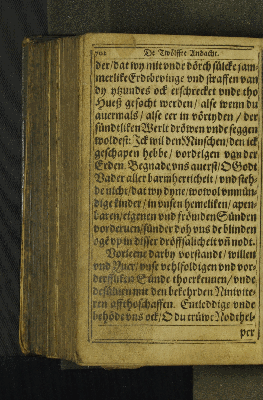 De Twölffte Andacht.
der/ dat wy mit vnde dörch sülcke jam-
merlike Erdtbevinge vnd straffen van
dy ytzundes ock erschrecket vnde tho
Hueß gesocht werden/ alse wenn du
auermals/ alse eer in vörtyden/ der
sündtliken Werlt dröwen vnde seggen
woldest: Ick wil den Minschen/ den ick
geschapen hebbe/ vordelgen van der
Erden. Begnade vns auerst/ O Godt
Vader aller barmherticheit/ vnd sueh-
de nicht/ dat wy dyne/ wowol vnmün-
dige kinder/ in vnsen hemeliken/ apen-
baren/ eigenen vnd frömden Sünden
vorderuen/ sünder doh vns de blinden
ogē vp in disser dröffsalicheit vñ nodt.
Vorleene darby vorstandt/ willen
vnd Yuer/ vnse vehlfoldigen vnd vor-
derffliken Sünde thoerkennen/ vnde
desüluen mit den bekehrden Niniuite-
ren afftho­schaffen. Entleddige vnde
behöde vns ock/ O du trüwe Nodthel-
per